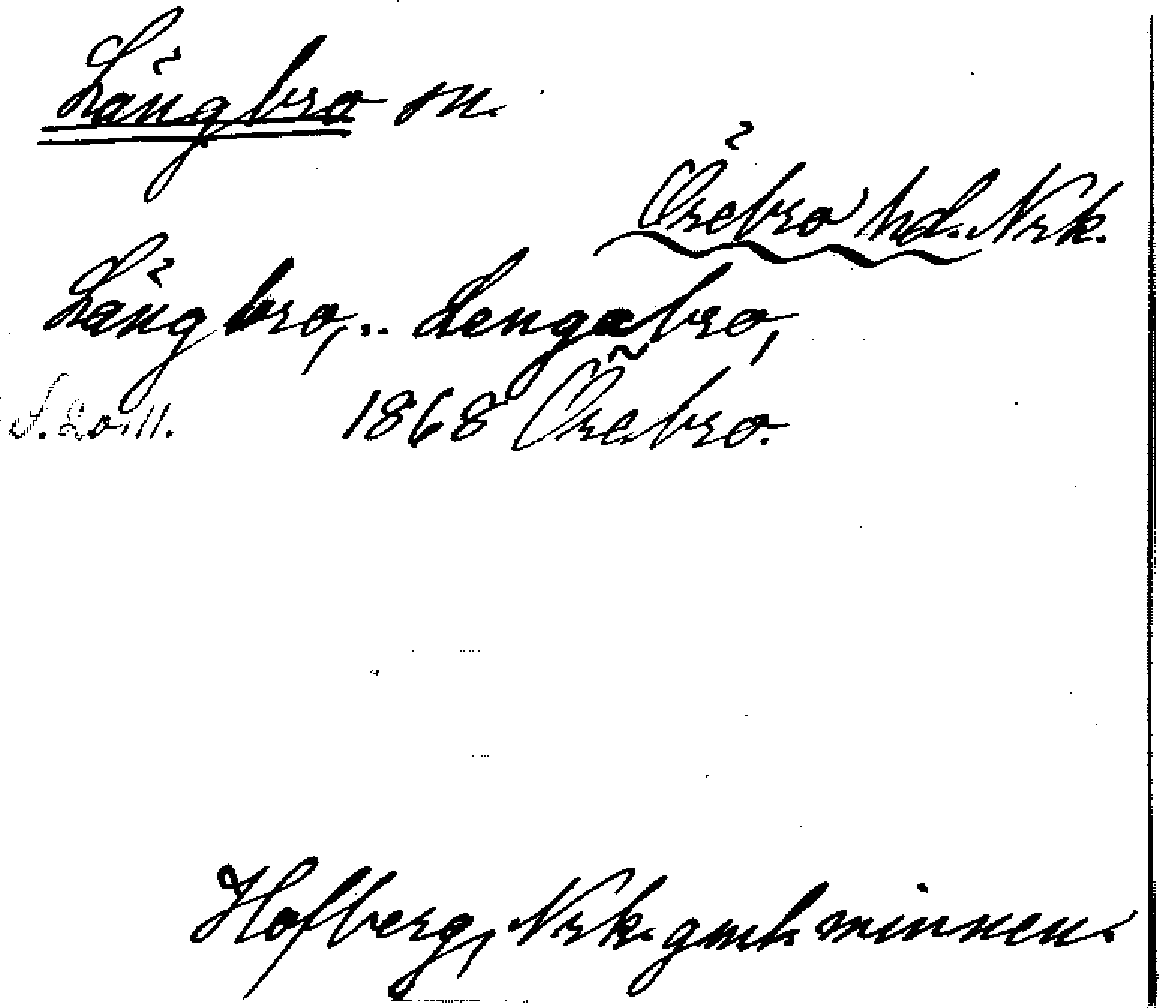 Långbro sn.
Örebro hd. Nrk.
Långbro,.. Lengabro,
1868 Örebro.
Hofberg, Nrk. gml. minnen.